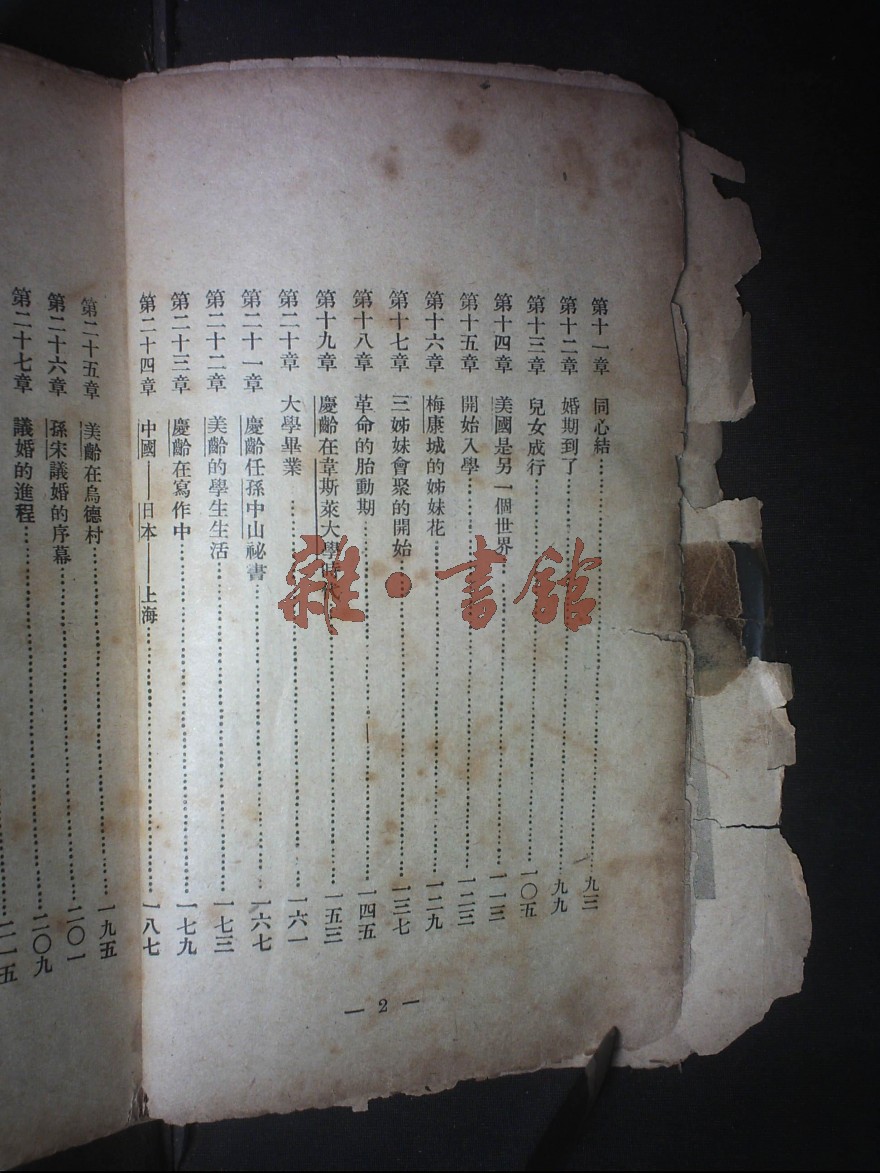 第十一章 同心結……九三
第十二章 婚期到了……九九
第十三章 兒女成行……一〇五
第十四章 美國是另一個世界……一一三
第十五章 開始入學……一二三
第十六章 梅康城的姊妹花……一二九
第十七章 三姊妹會聚的開始……一三七
第十八章 革命的胎動期……一四五
第十九章 慶齡在韋斯萊大學時代……一五三
第二十章 大學畢業……一六一
第二十一章 慶齡任孫中山祕書……一六七
第二十二章 美齡的學生生活……一七三
第二十三章 慶齡在寫作中……一七九
第二十四章 中國——日本——上海……一八七
— 2 —
第二十五章 美齡在烏德村……一九五
第二十六章 孫宋議婚的序幕……二〇一
第二十七章 議婚的進程……二〇九
二一五
雜·書館